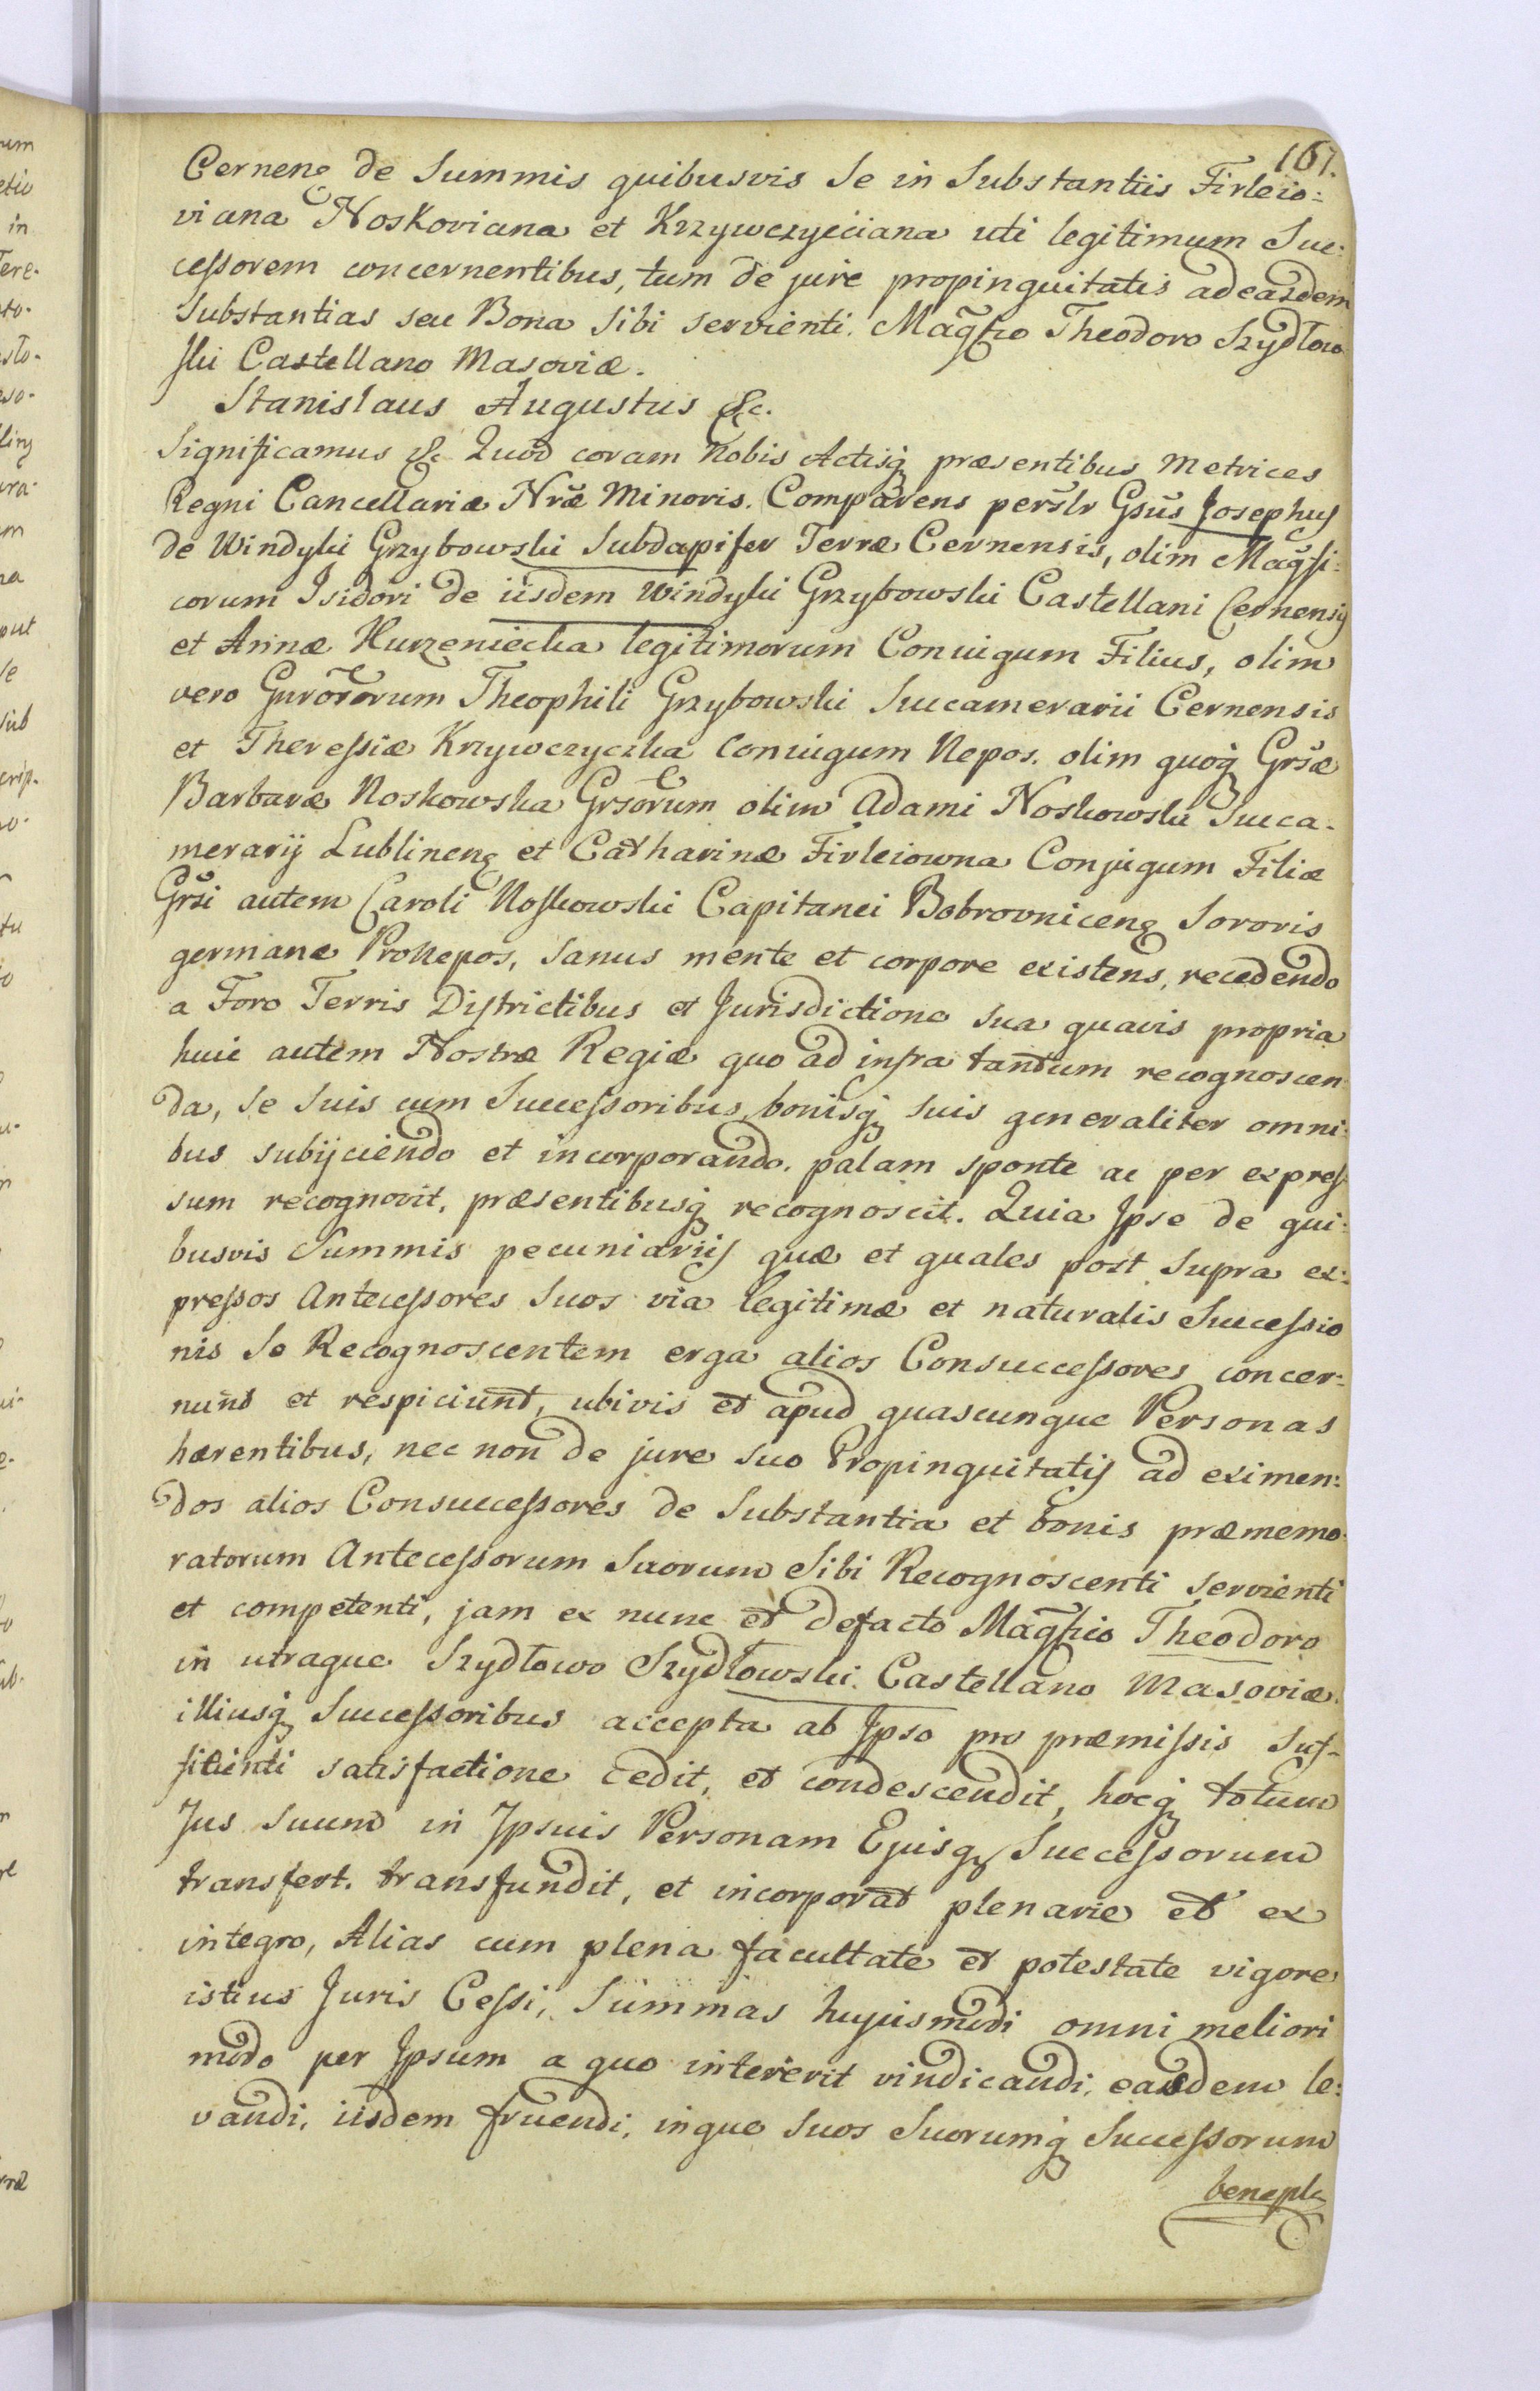 161.
Cernenę de Summis quibusvis Se in Substantiis Firleio:
viana Noskoviana et Krzywczyciana uti legitimum Suc:
cessorem concernentibus, tum de jure propinquitatis ad easdem
Substantias seu Bona Sibi servienti. Magfico Theodoro Szydłow
ski Castellano Masoviæ.
Stanislaus Augustus &c.
Significamus &c Quod coram Nobis Actisq præsentibus Metrices
Regni Cancellariæ Nræ Minoris. Comparens perslr Gsus Josephus
de Windyki Grzybowski Subdapifer Terræ Cernensis, olim Magfi:
corum Isidori de iisdem Windyki Grzybowski Castellani Cernensis
et Annæ Kurzeniecka legitimorum Coniugum Filius, olim
vero Gnrororum Theophili Grzybowski Succamerarii Cernensis
et Theressiæ Krzywczyczka Coniugum Nepos. olim quoq Grsæ
Barbaræ Noskowska Grsorum olim Adami Noskowski Succa.
merarij Lublinenę et Catharinæ Firleiowna Conjugum Filiæ
Grsi autem Caroli Noskowski Capitanei Bobrovnicenę Sororis
germanæ ProNepos, Sanus mente et corpore existens, recedendo
a Foro Terris Districtibus et Jurisdictione Sua quavis propria
huic autem Nostræ Regiæ quo ad infra tantum recognoscen
da, Se Suis cum Successoribus, bonisq suis generaliter omni:
bus subijciendo et incorporando. palam sponte ac per expres
sum recognovit, præsentibusq recognoscit. Quia Ipse de qui:
busvis Summis pecuniariis quæ et quales post Supra ex:
pressos Antecessores Suos via legitimæ et naturalis Successio
nis Se Recognoscentem erga alios Consuccessores concer:
nunt et respiciunt, ubivis et apud quascunque Personas
hærentibus, nec non de jure suo Propinquitatis ad eximen:
dos alios Consuccessores de Substantia et bonis præmemo
ratorum Antecessorum Suorum Sibi Recognoscenti servienti
et competenti, jam ex nunc et defacto Magfico Theodoro
in utraque Szydłowo Szydłowski. Castellano Masoviæ.
illiusq Successoribus accepta ab Ipso pro præmissis Suf-
ficienti satisfactione cedit, et condescendit, hocq totum
Jus Suum in Ipsius Personam Ejusq Successorum
transfert. transfundit, et incorporat plenarie et ex
integro, Alias cum plena facultate et potestate vigore
istius Juris Cessi, Summas hujusmodi omni meliori
modo per Ipsum a quo intererit vindicandi, easdem le:
vandi, iisdem fruendi, inque Suos Suorumq Successorum
benepla